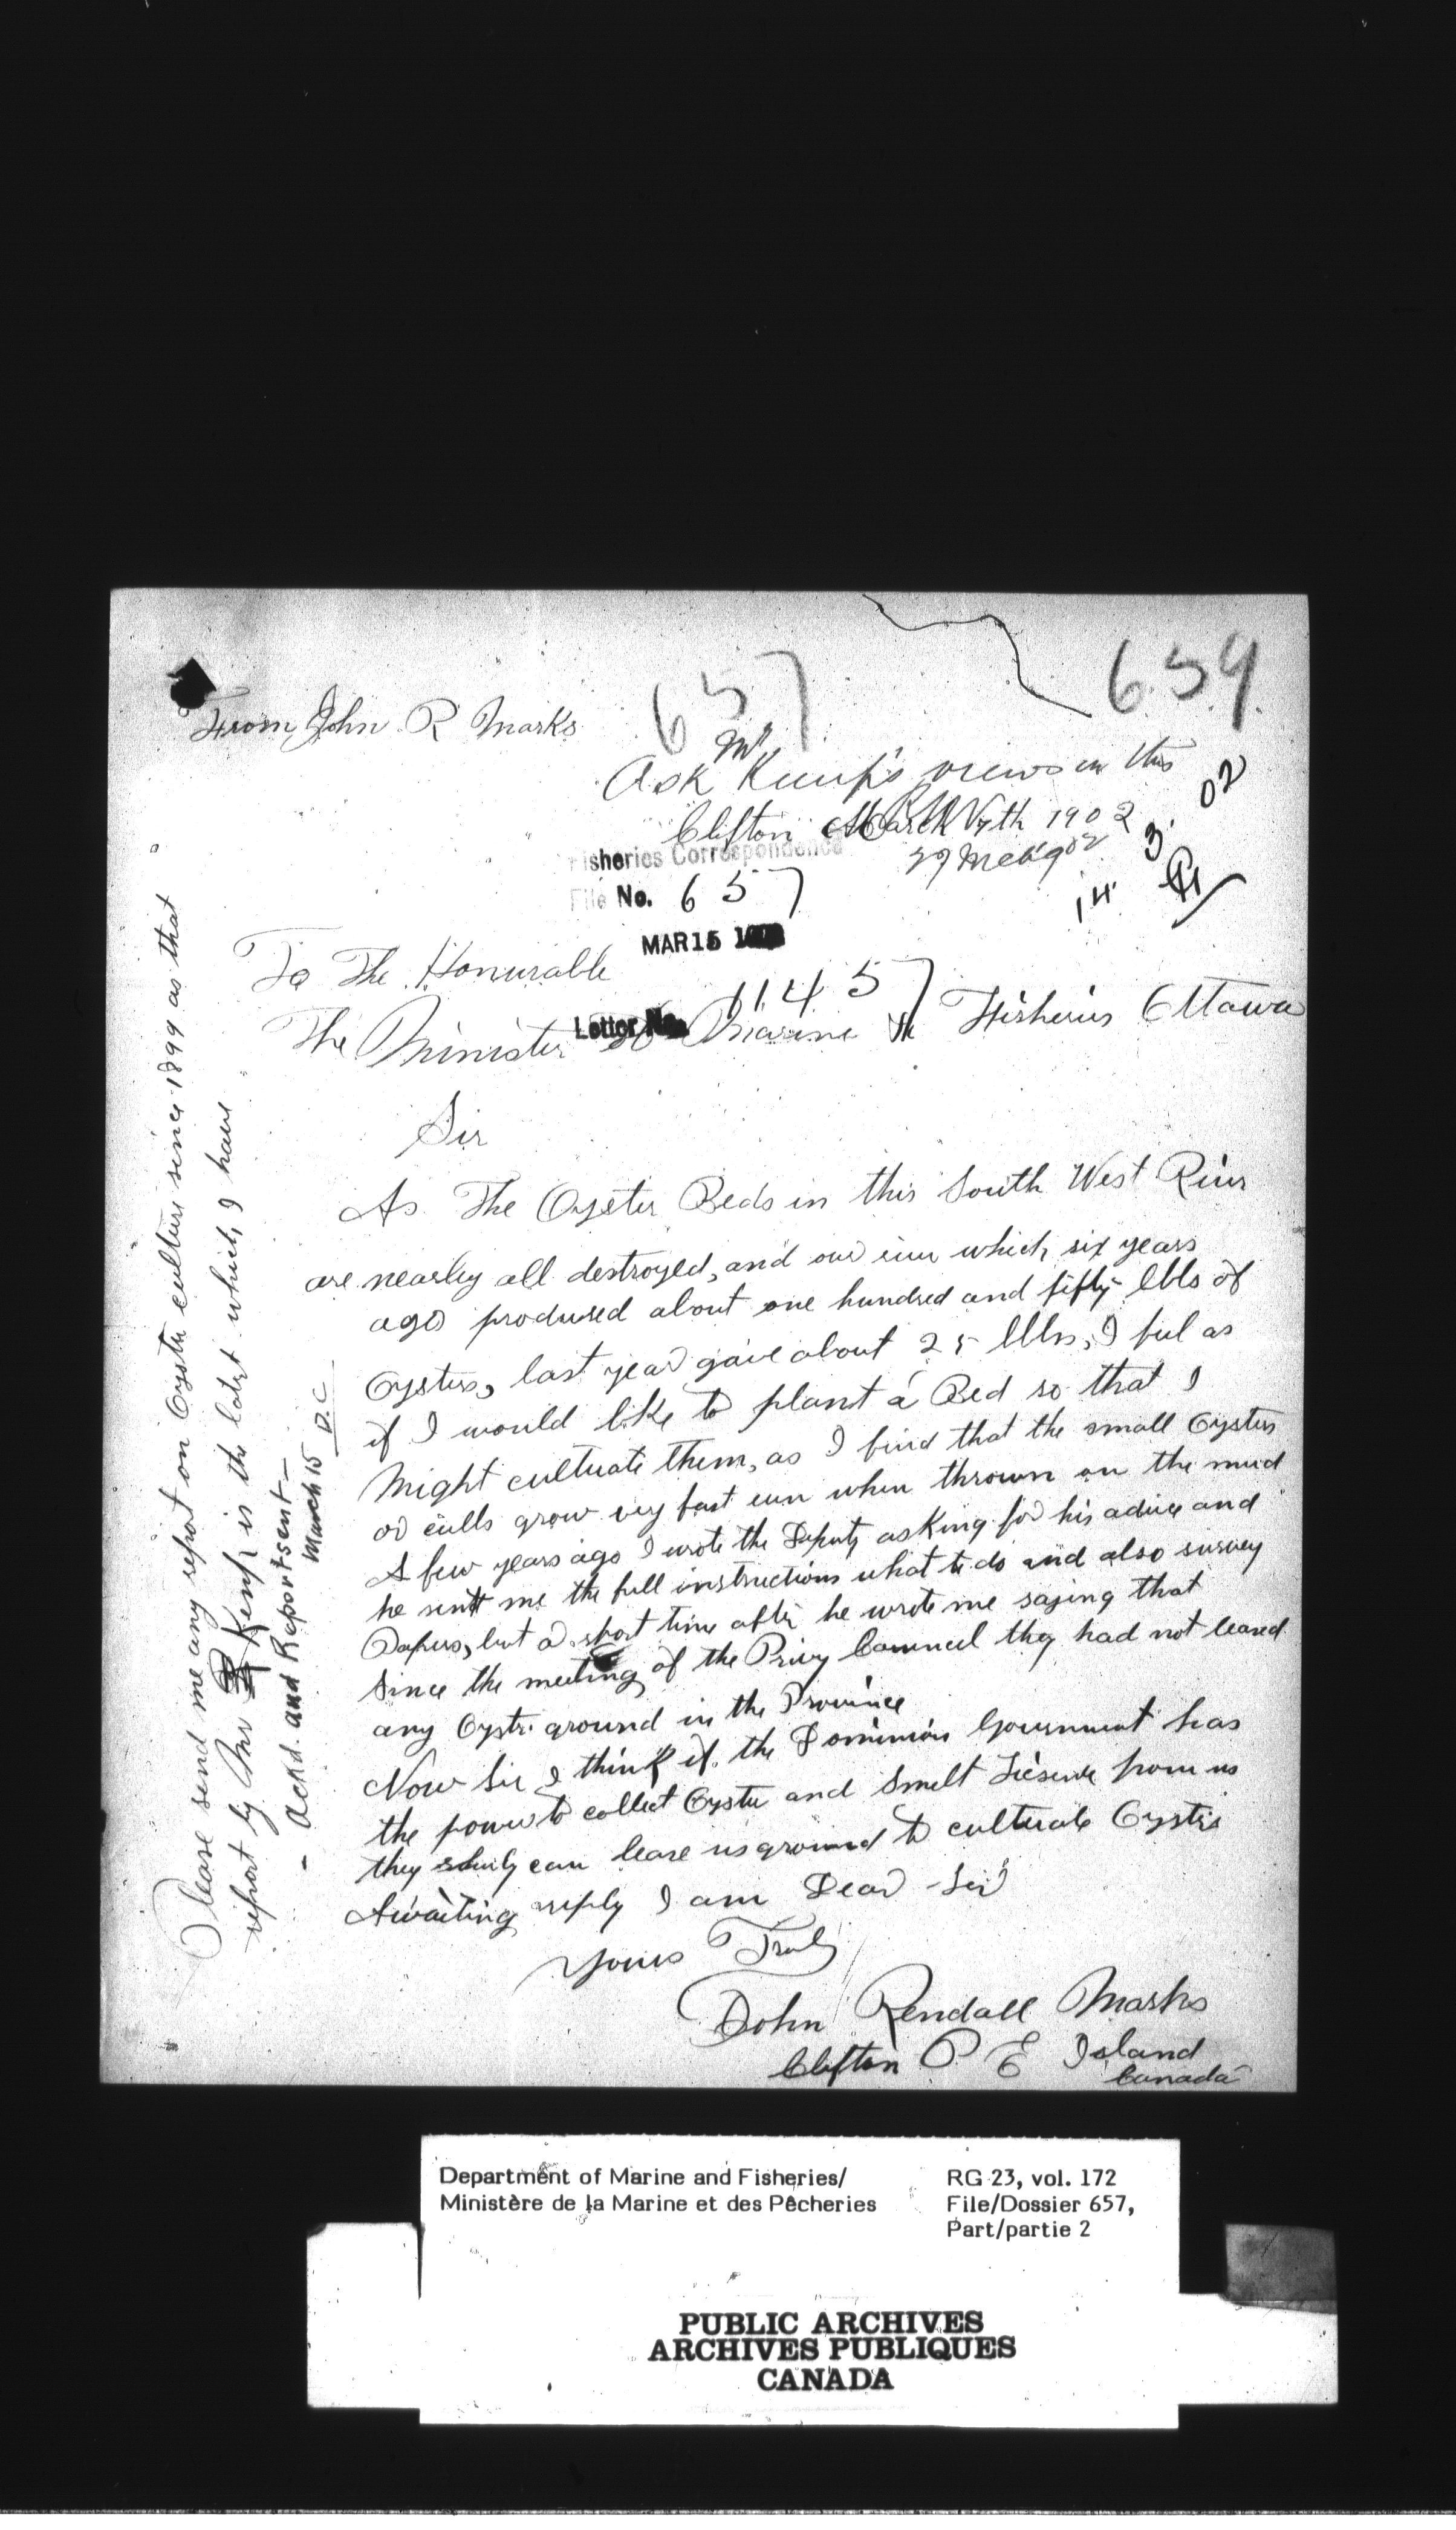 657
659.
From John R Marks
Ask Mr Kemp's views on this
Clifton March 7th 1902
14. 3. 02
Fisheries Correspondence
File No. 657
MAR 15
To The Honurable
Letter No. 11457
The Minister of Marine & Fisheries Ottawa
Sir
As The Oyster Beds in this South West River
are nearley all destroyed, and our river which six years
ago produced about one hundred and fifty bbls of
Oysters, last year gave about 25 bbls, I feel as
if I would like to plant a Bed so that I
Might cultuate them, as I find that the small Oysters
or culls grow very fast even when thrown on the mud
A few years ago I wrote the Deputy asking for his advice and
he sent me the full instructions what to do and also survey
Papers, but a short time after he wrote me saying that
Since the meeting of the Privy Council they had not leased
any Oyster ground in the Province
Now Sir I think if the Dominion Government has
the power to collect Oyster and Smelt Liesence from us
they surely can lease us ground to cultuate Oysters
Awaiting reply I am Dear Sir
Yours Truly
John Rendall Marks
Clifton P E Island
Canada
Please send me any report on Oyster culture since 1899 as that
report by Mr Kemp is the latest which I have
- Ackd. and Report sent -
March 15 D.C
Department of Marine and Fisheries/
Ministère de la Marine et des Pêcheries
RG 23, vol. 172
File/Dossier 657,
Part/partie 2
PUBLIC ARCHIVES
ARCHIVES PUBLIQUES
CANADA